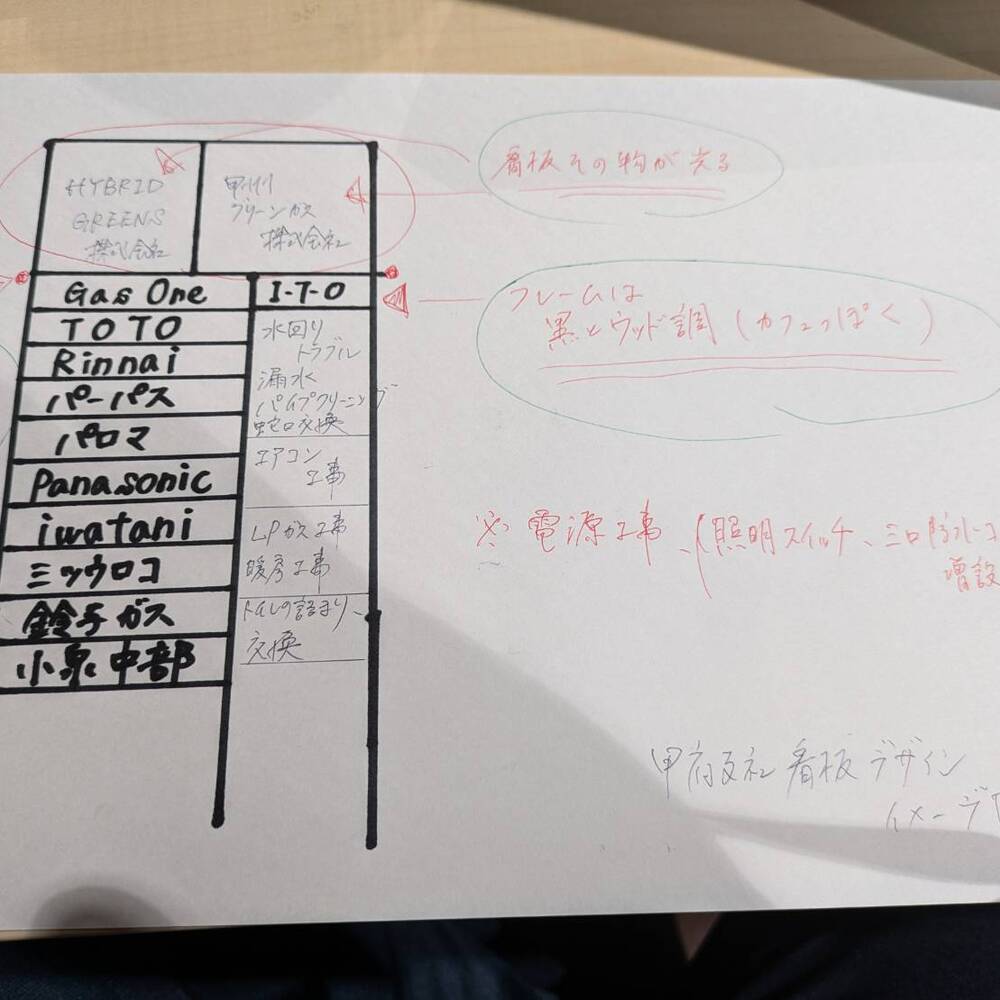 HYBRID
GREENS
株式会社
甲州
グリーンガス
株式会社
看板その物が光る
Gas One
I-T-O
フレームは
黒とウッド調(カフェっぽく)
TOTO
Rinnai
パーパス
パロマ
Panasonic
iwatani
ミツウロコ
鈴与ガス
小泉中部
水回り
トラブル
漏水
パイプクリーニング
蛇口交換
エアコン
工事
LPガス工事
暖房工事
トイレの詰まり、
交換
※電源工事、(照明スイッチ、三ロ防水コ
増設
甲府支社看板デザイン
イメージ